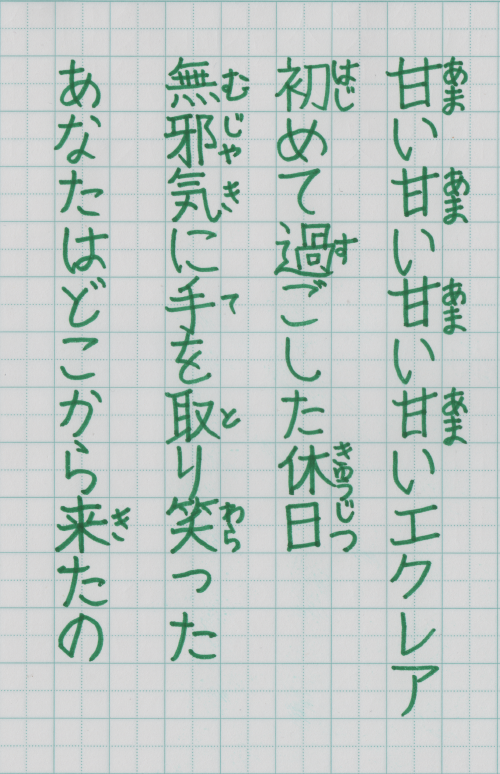 甘い甘い甘い甘いエクレア
あま あま あま あま
初めて過ごした休日
はじ す きゅうじつ
無邪気に手を取り笑った
むじゃき て と わら
あなたはどこから来たの
き